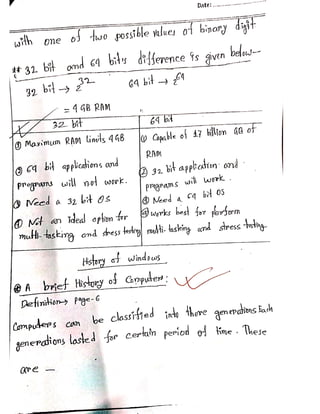 Date:
with one of two possible values of binary digit
** 32 bit and 64 bits difference is given below—
32 bit → 2^32 64 bit → 2^64
= 4 GB RAM
32 bit
① Maximum RAM limits 4GB
② 64 bit applications and
programs will not work.
③ Need a 32 bit OS
④ Not an ideal option for
multi-tasking and stress testing
64 bit
① Capable of 17 billion GB of
RAM
② 32 bit application and
programs will work.
③ Need a 64 bit OS
④ works best for perform
multi-tasking and stress testing.
History of windows
A brief History of Computer:
Defination→ Page-6
Computers can be classified into three generations. Each
generations lasted for certain period of time. These
are —